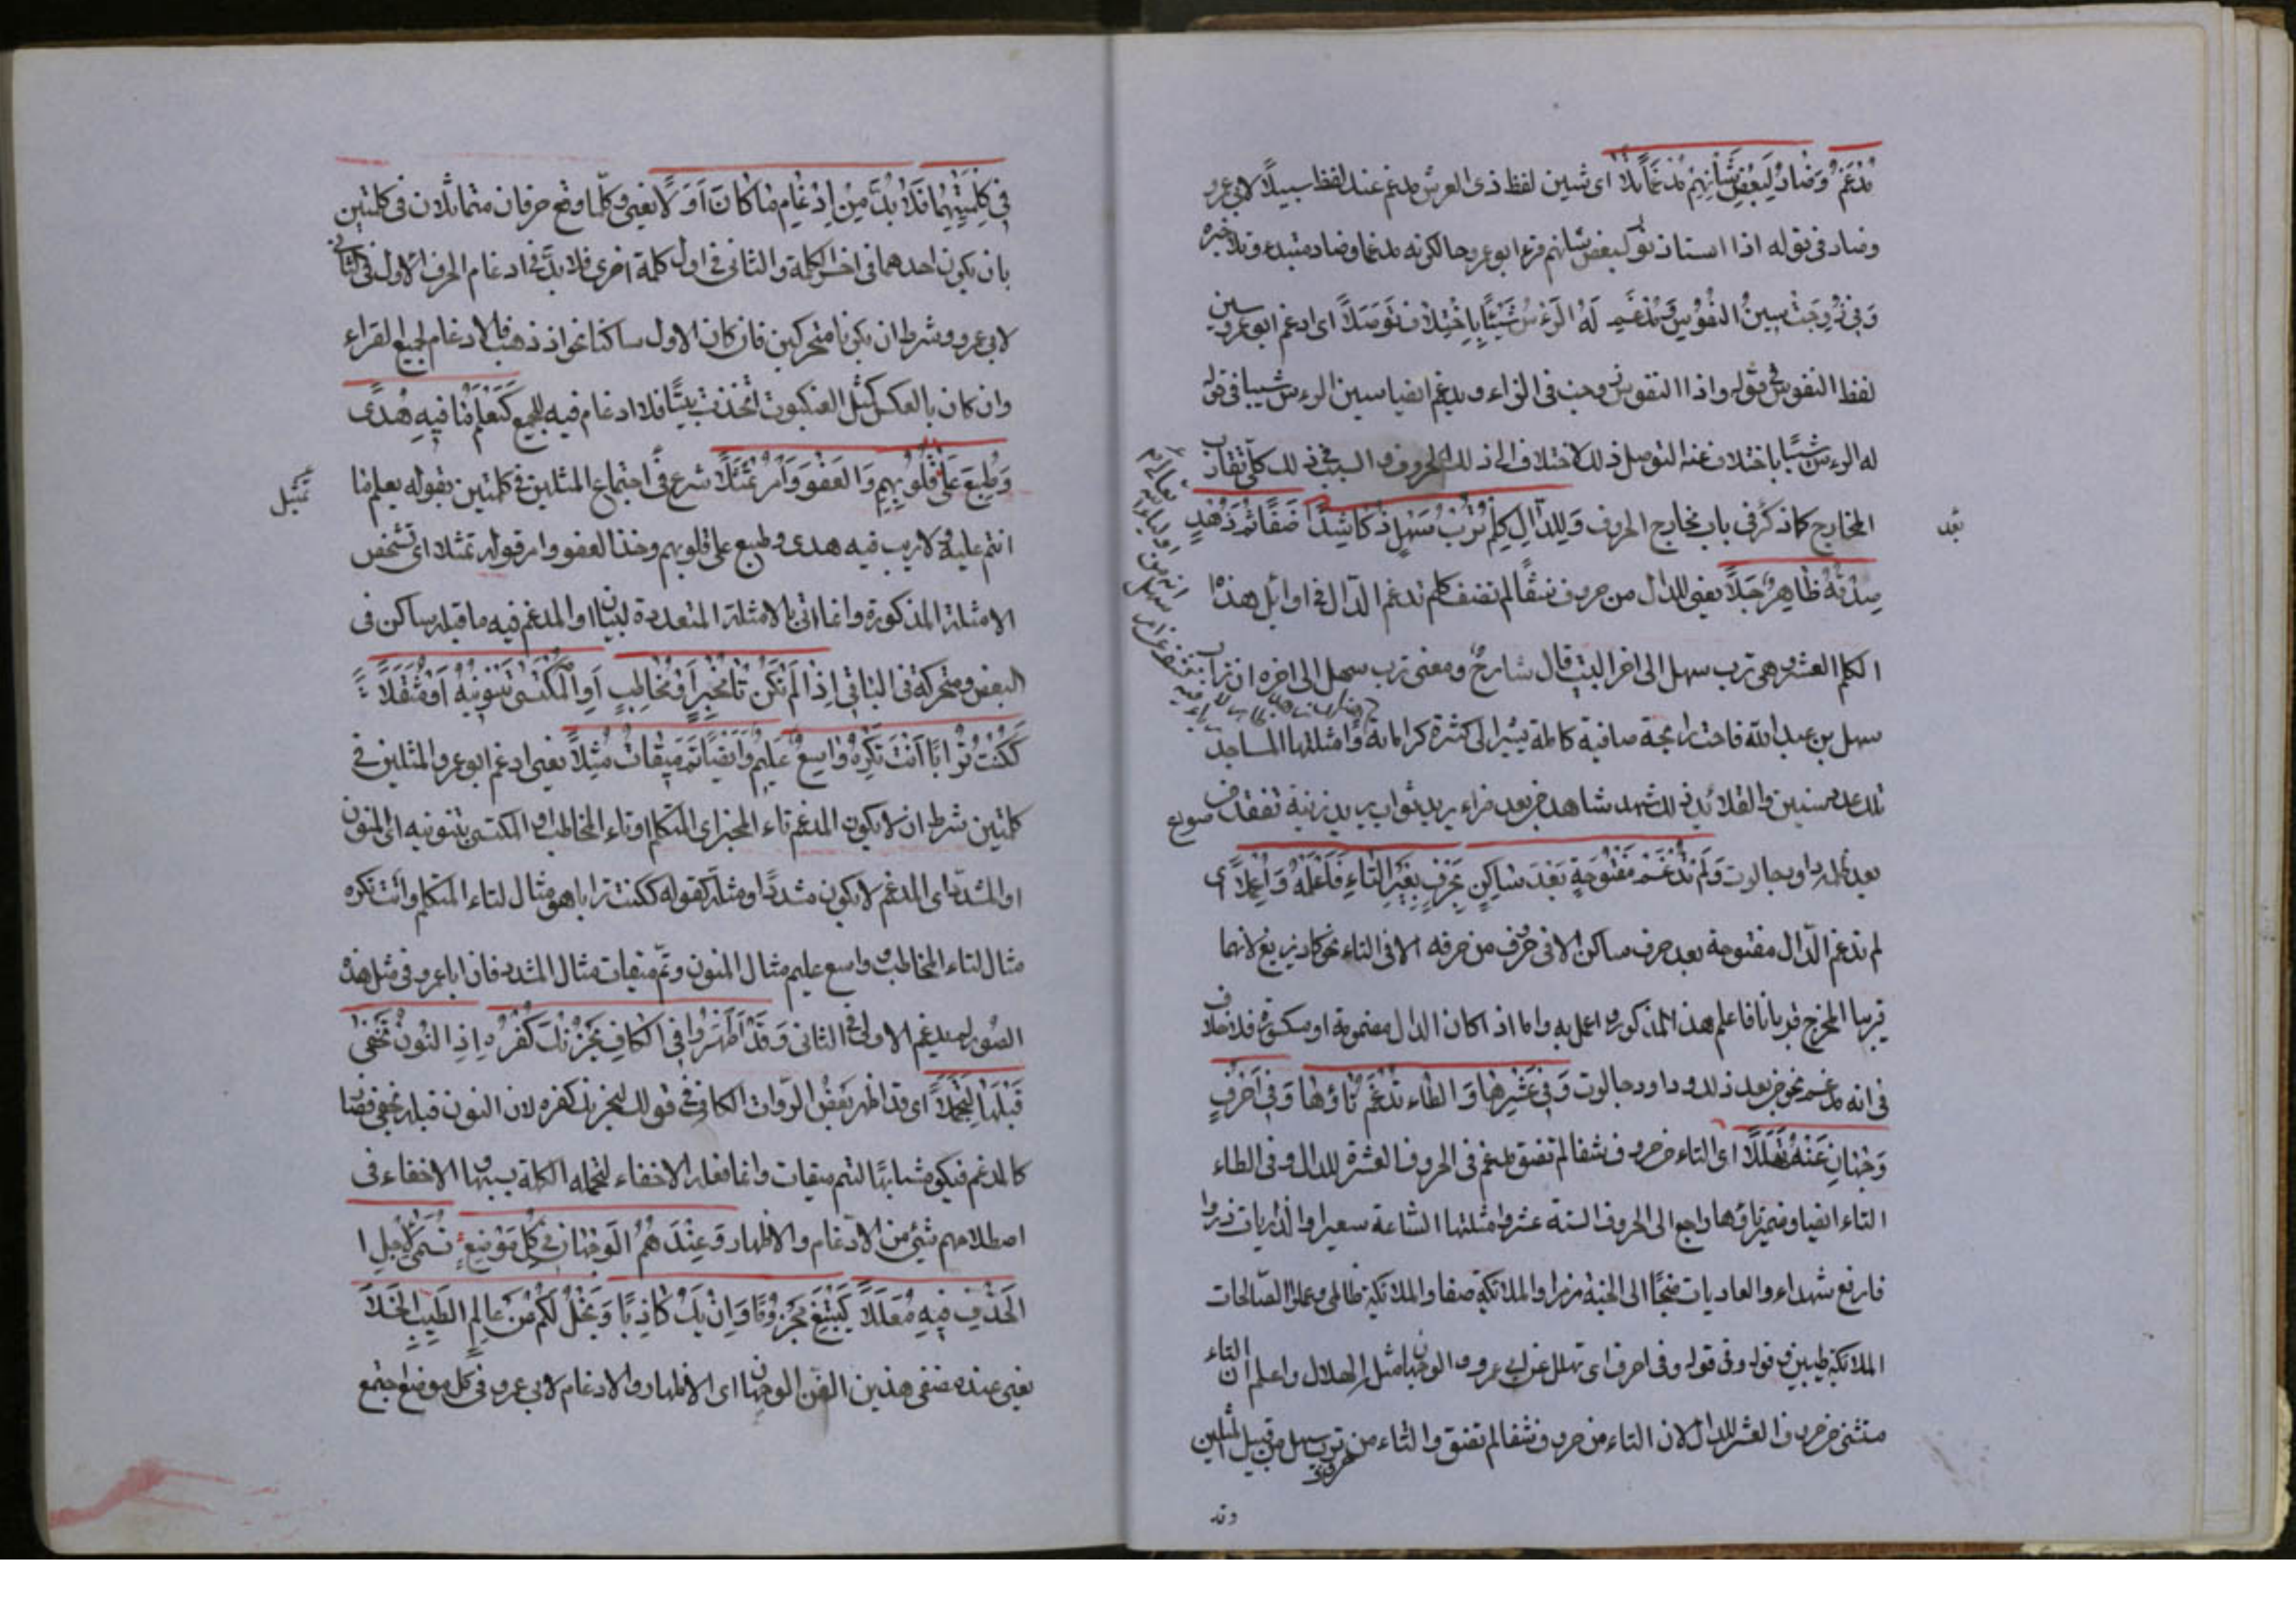 مُدْغَمٌ وَضَادُ لِبَعْضِ شَأْنِهِمْ مُدْغَمًا تَلَا اى شين لفظ ذى العرش مدغم عند لفظ سبيلًا لابى عمرو
وضاد فى قوله اذا استاذنوك لبعض شانهم قرء ابو عمرو حالكونه مدغما وضاد مبتدء وتلا خبره
وَفِى زُوِّجَتْ سِينُ النُّفُوسِ وَمُدْغَمٌ لَهُ الرَّءْسُ شَيْبًا بِاخْتِلَافٍ تَوَصَّلَا اى ادغم ابو عمرو سين
لفظ النفوس فى قوله واذا النفوس زوجت فى الزاء ويدغم ايضا سين الرءس شيبا فى قوله
له الرءس شيبًا باختلاف عنه التوصل ذلك الاختلاف الى ذلك الحروف و السبب فى ذلك كله تقارب
المخارج كما ذكر فى باب مخارج الحروف وَلِلدَّالِ كِلْمٌ تُرْبُ سَهْلٍ ذَكَا شَذًا ضَفَا ثُمَّ زُهْدٌ
صِدْقُهُ ظَاهِرٌ جَلَا يعنى للدال من حروف شفا لم تضق كلم تدغم الدال فى اوائل هذه
الكلم العشر وهى ترب سهل الى اخر البيت قال شارح ومعنى ترب سهل الى اخره ان تراب
سهل بن عبد الله فاحت رايحة صافية كاملة يشير الى كثرة كراماته وامثلتها المساجد
تلك عدد سنين والقلائد ذلك شهد شاهد من بعد ضراء يريد ثواب يريد زينة نفقد صواع
بعد ظلمه داود جالوت وَلَمْ تُدْغَمْ مَفْتُوحَةً بَعْدَ سَاكِنٍ بِحَرْفٍ بِغَيْرِ التَّاءِ فَاعْلَمْهُ وَاعْمَلَا اى
لم تدغم الدال مفتوحة بعد حرف ساكن الا فى حرف من حرفه الا فى التاء نحو كاد يزيغ لانهما
قريبا المخرج قربا تاما فاعلم هذا المذكور واعمل به واما اذا كان الدال مضمومة او مكسورة فلا خلاف
فى انه تدغم نحو من بعد ذلك وداود جالوت وَفِى عَشْرِهَا وَالطَّاءِ تُدْغَمُ تَاؤُهَا وَفِى اَحْرُفٍ
وَجْهَانِ عَنْهُ تَهَلَّلَا اى التاء من حروف شفا لم تضق مدغم فى الحروف العشرة للدال وفى الطاء
التاء ايضا وضمير تاؤها راجع الى الحروف الستة عشر وامثلتها الساعة سعيرا والذاريات ذروا
فاربع شهداء والعاديات ضبحًا الى الجنة زمرا والملائكة صفا والملائكة ظالمى وعملوا الصالحات
الملائكة طيبين وقوله وفى احرف اى تهلل عن ابى عمرو الوجهان مثل الهلال واعلم ان التاء
مستثنى من حروف العشر للدال لان التاء من حروف شفا لم تضق والتاء من حروف ترب سهل من قبيل المثلين
وقد
فِى كِلْمَتَيْهِمَا فَلَا بُدَّ مِنْ اِدْغَامِ مَا كَانَ اَوَّلًا يعنى وكلما وقع حرفان متماثلان فى كلمتين
بان يكون احدهما فى اخر الكلمة والثانى فى اول كلمة اخرى فلا بد فى ادغام الحرف الاول فى الثانى
لابى عمرو وشرط ان يكونا متحركين فان كان الاول ساكنا نحو اذ ذهب فالادغام لجميع القراء
وان كان بالعكس كمثل العنكبوت اتخذت بيتًا فلا ادغام فيه للجميع كَيَعْلَمُ مَا فِيهِ هُدًى
وَطُبِعَ عَلَى قُلُوبِهِمْ وَالْعَفْوَ وَأْمُرْ تَمَثَّلَا شرع فى اجتماع المثلين فى كلمتين بقوله يعلم ما
تمثيل
انتم عليه ولا ريب فيه هدى وطبع على قلوبهم وخذ العفو وامر قوله تمثلا اى تشخص
الامثلة المذكورة وانما اتى بالامثلة المتعددة لبيان او المدغم فيه ما قبله ساكن فى
البعض ومتحركة فى الباقى اِذَا لَمْ يَكُنْ تَا مُخْبِرٍ اَوْ مُخَاطَبٍ اَوِ الْمُكْتَسِى تَنْوِينُهُ اَوْ مُثَقَّلَا
كَكُنْتُ تُرَابًا اَنْتَ تُكْرِهُ وَاسِعٌ عَلِيمٌ وَاَيْضًا تَمَّ مِيقَاتُ مُثِّلَا يعنى ادغم ابو عمرو المثلين فى
كلمتين شرط ان لا يكون المدغم تاء المخبر اى المتكلم او تاء المخاطب او المكتسى بتنوينه اى المنون
او المشدد اى المدغم لا يكون مشددًا ومثله كقوله ككنت ترابا هو مثال لتاء المتكلم وانت تكره
مثال لتاء المخاطب وواسع عليم مثال المنون وتم ميقات مثال المشدد فان ابا عمرو فى مثل هذه
الصور لم يدغم الاولى فى الثانى وَقَدْ اَظْهَرُوا فِى الْكَافِ يَحْزُنْكَ كُفْرُهُ اِذِ النُّونُ تُخْفَى
قَبْلَهَا لِتُجَمَّلَا اى قد اظهر بعض الروات الكاف فى قوله يحزنك كفره لان النون قبله تخفى فصا
كالمدغم فيكون مشابهًا لتم ميقات وانما فعله الاخفاء لتجمله الكلمة بسببها والاخفاء فى
اصطلاحهم شئ من الادغام والاظهار وَعِنْدَهُمُ الْوَجْهَانِ فِى كُلِّ مَوْضِعٍ تَسَمَّى لِاَجْلِ ا
لْحَذْفِ فِيهِ مُعَلَّلَا كَيَبْتَغِ مَجْزُومًا وَاِنْ يَكُ كَاذِبًا وَيَخْلُ لَكُمْ عَنْ عَالِمٍ طَيِّبِ الْخَلَا
يعنى عند الوجهان اى الاظهار والادغام لابى عمرو فى كل موضع اجتمع